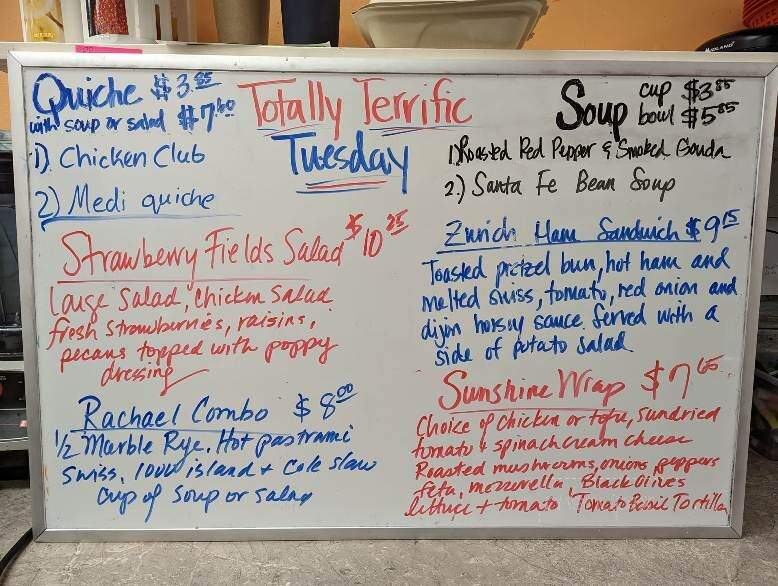 Quiche $3.85
with soup or salad $7.60
1) Chicken Club
2) Medi quiche
Totally Terrific
Tuesday
Soup cup $3.85
bowl $5.85
1) Roasted Red Pepper & Smoked Gouda
2.) Santa Fe Bean Soup
Strawberry Fields Salad $10.25
Large Salad, Chicken Salad
fresh strawberries, raisins,
pecans topped with poppy
dressing
Zurich Ham Sandwich $9.15
Toasted pretzel bun, hot ham and
melted swiss, tomato, red onion and
dijon horsey sauce. Served with a
side of potato salad.
Rachael Combo $8.00
1/2 Marble Rye, Hot pastrami
Swiss, 1000 island + Cole slaw
Cup of Soup or salad
Sunshine Wrap $7.65
Choice of Chicken or tofu, sundried
tomato + spinach cream cheese
Roasted mushrooms, onions, peppers
feta, mozzerella, Black Olives
lettuce + tomato Tomato Basil Tortilla